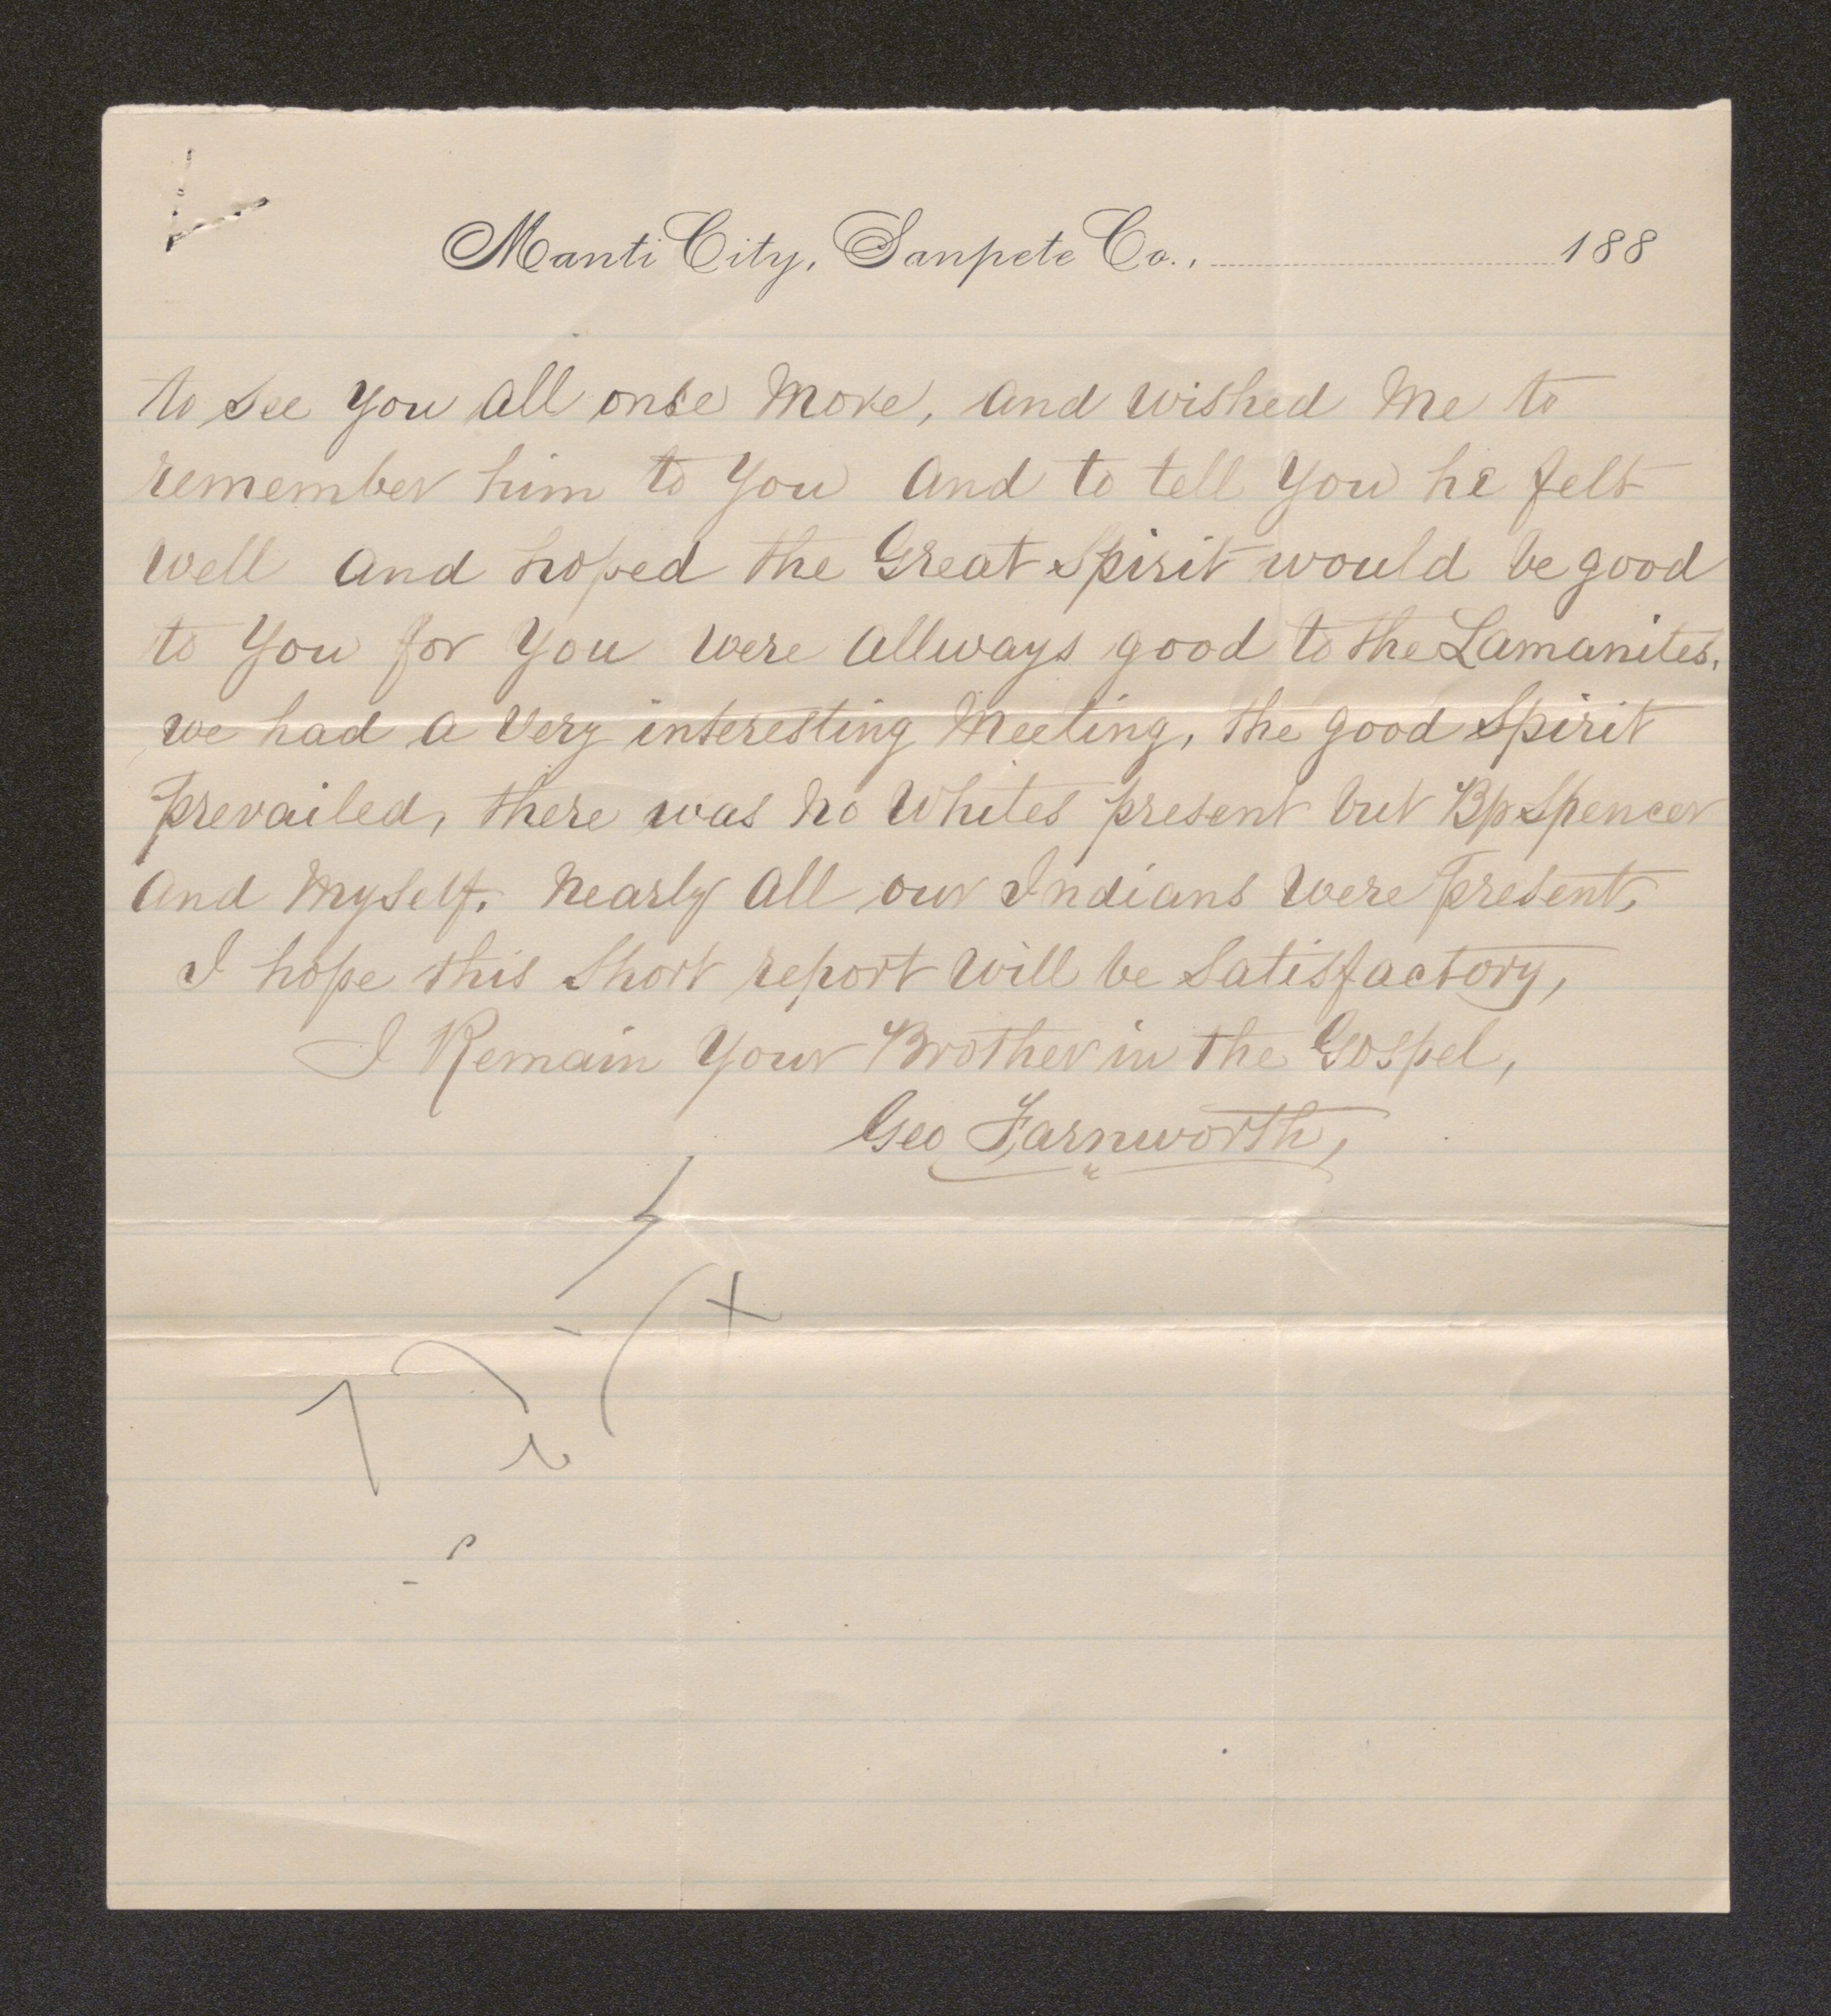 Manti City, Sanpete Co., 188
to see you all onse More, and wished Me to
remember him to You And to tell You he felt
well and hoped the Great Spirit would be good
to You for You were allways good to the Lamanites.
we had a Very interesting Meeting, the good Spirit
Prevailed, there was no Whites present but Bp Spencer
And Myself. Nearly all our Indians were Present,
I hope this Short report will be Satisfactory,
I Remain Your Brother in the Gospel,
Geo Farnworth,